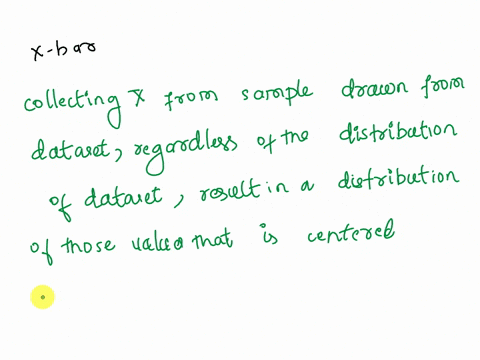 x-bar
collecting x̄ from sample drawn from
dataset, regardless of the distribution
of dataset, result in a distribution
of those value that is centered